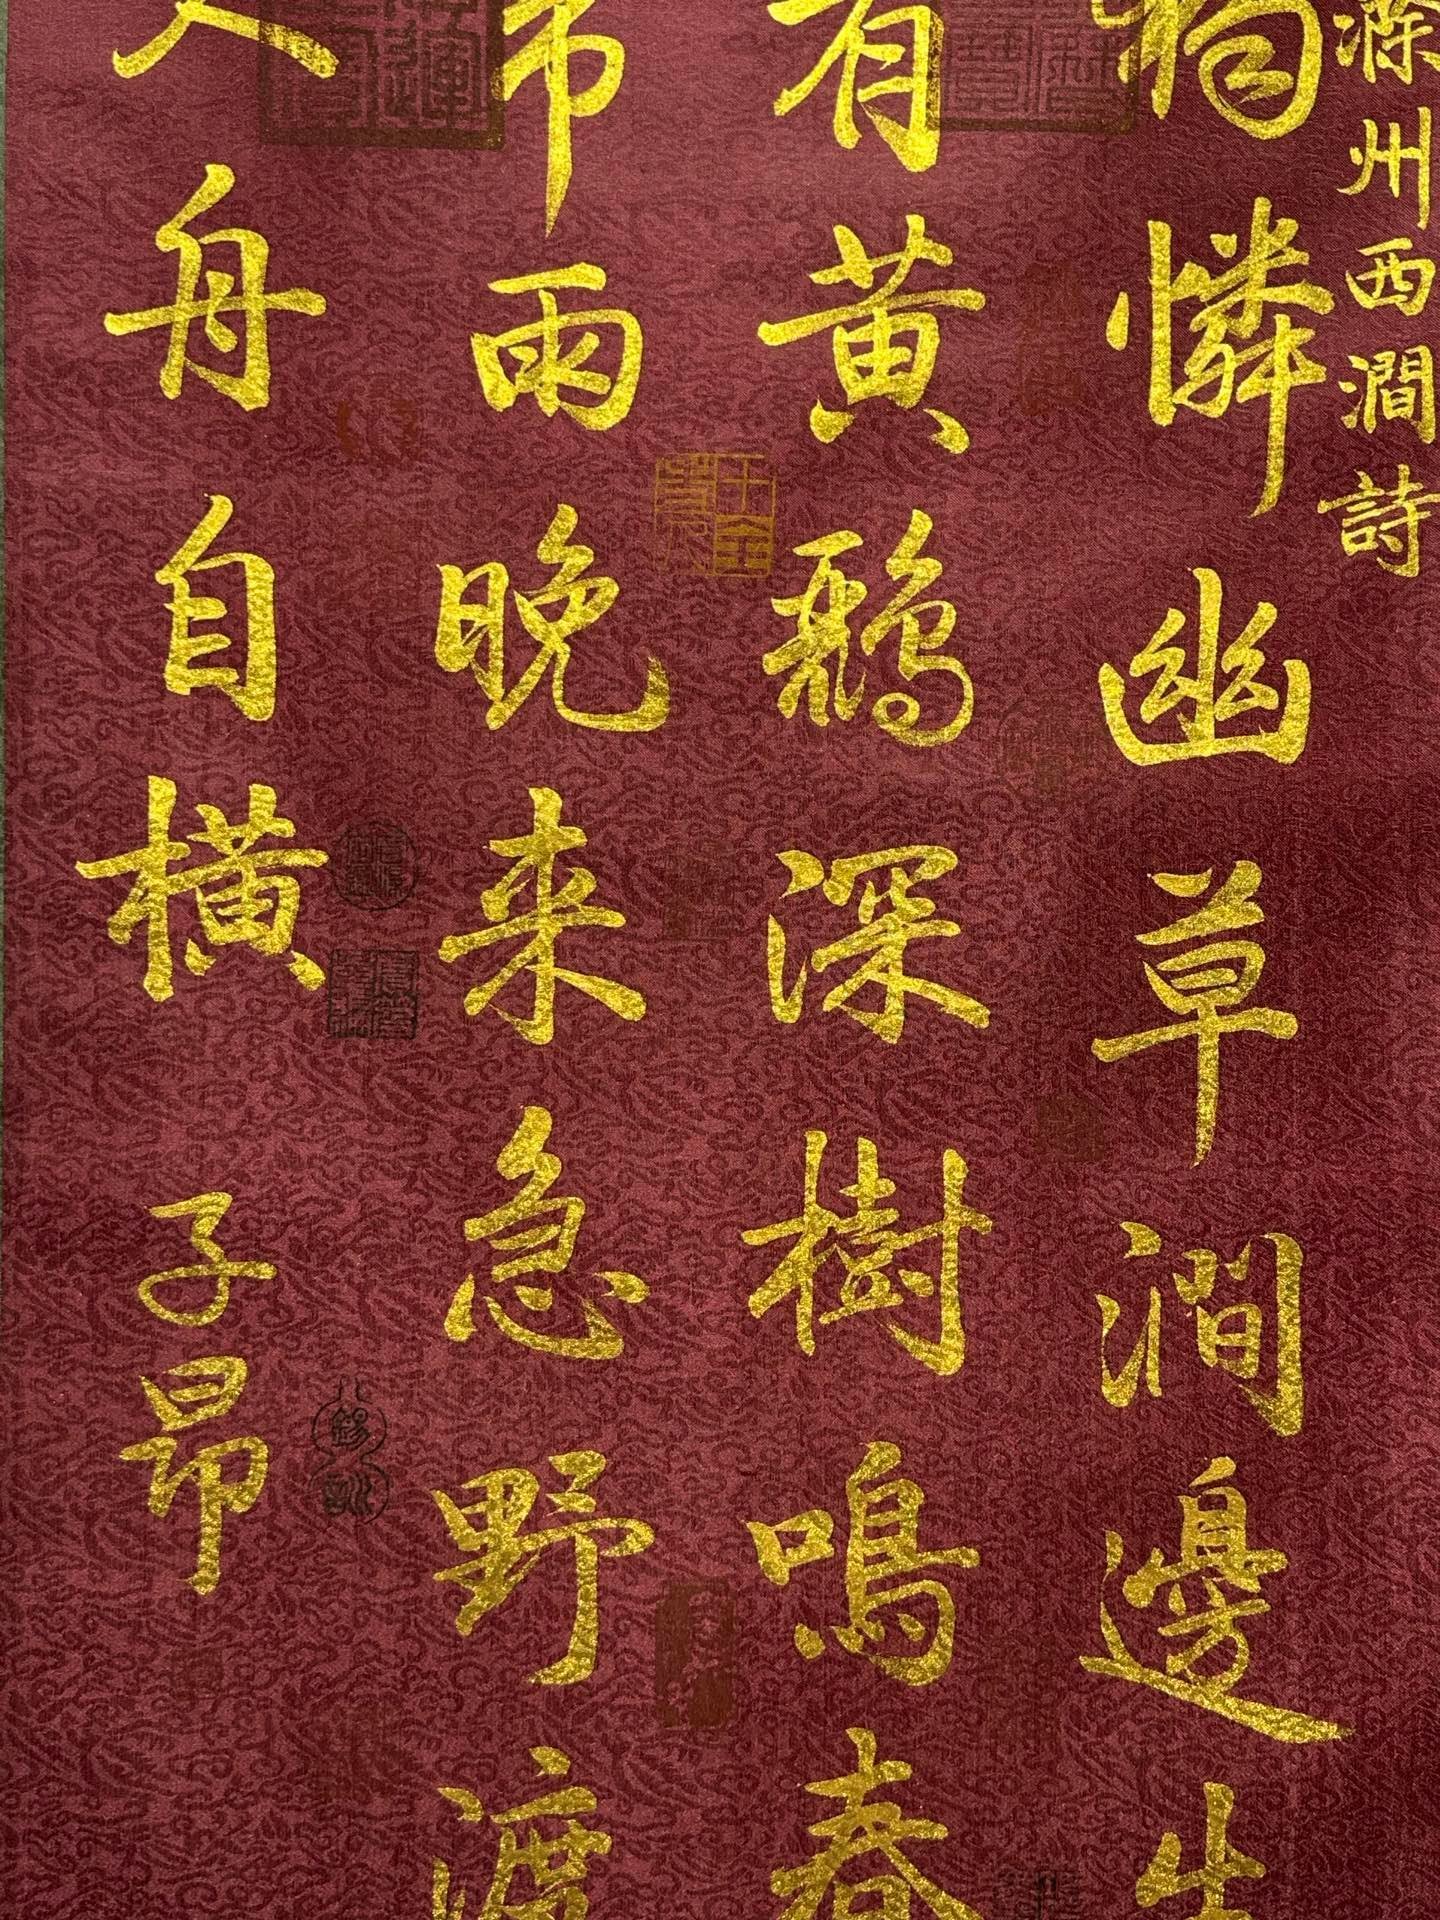 滁州西澗詩
獨憐幽草澗邊生
有黄鸝深樹鳴春
帶雨晚来急野渡
人舟自橫 子昂